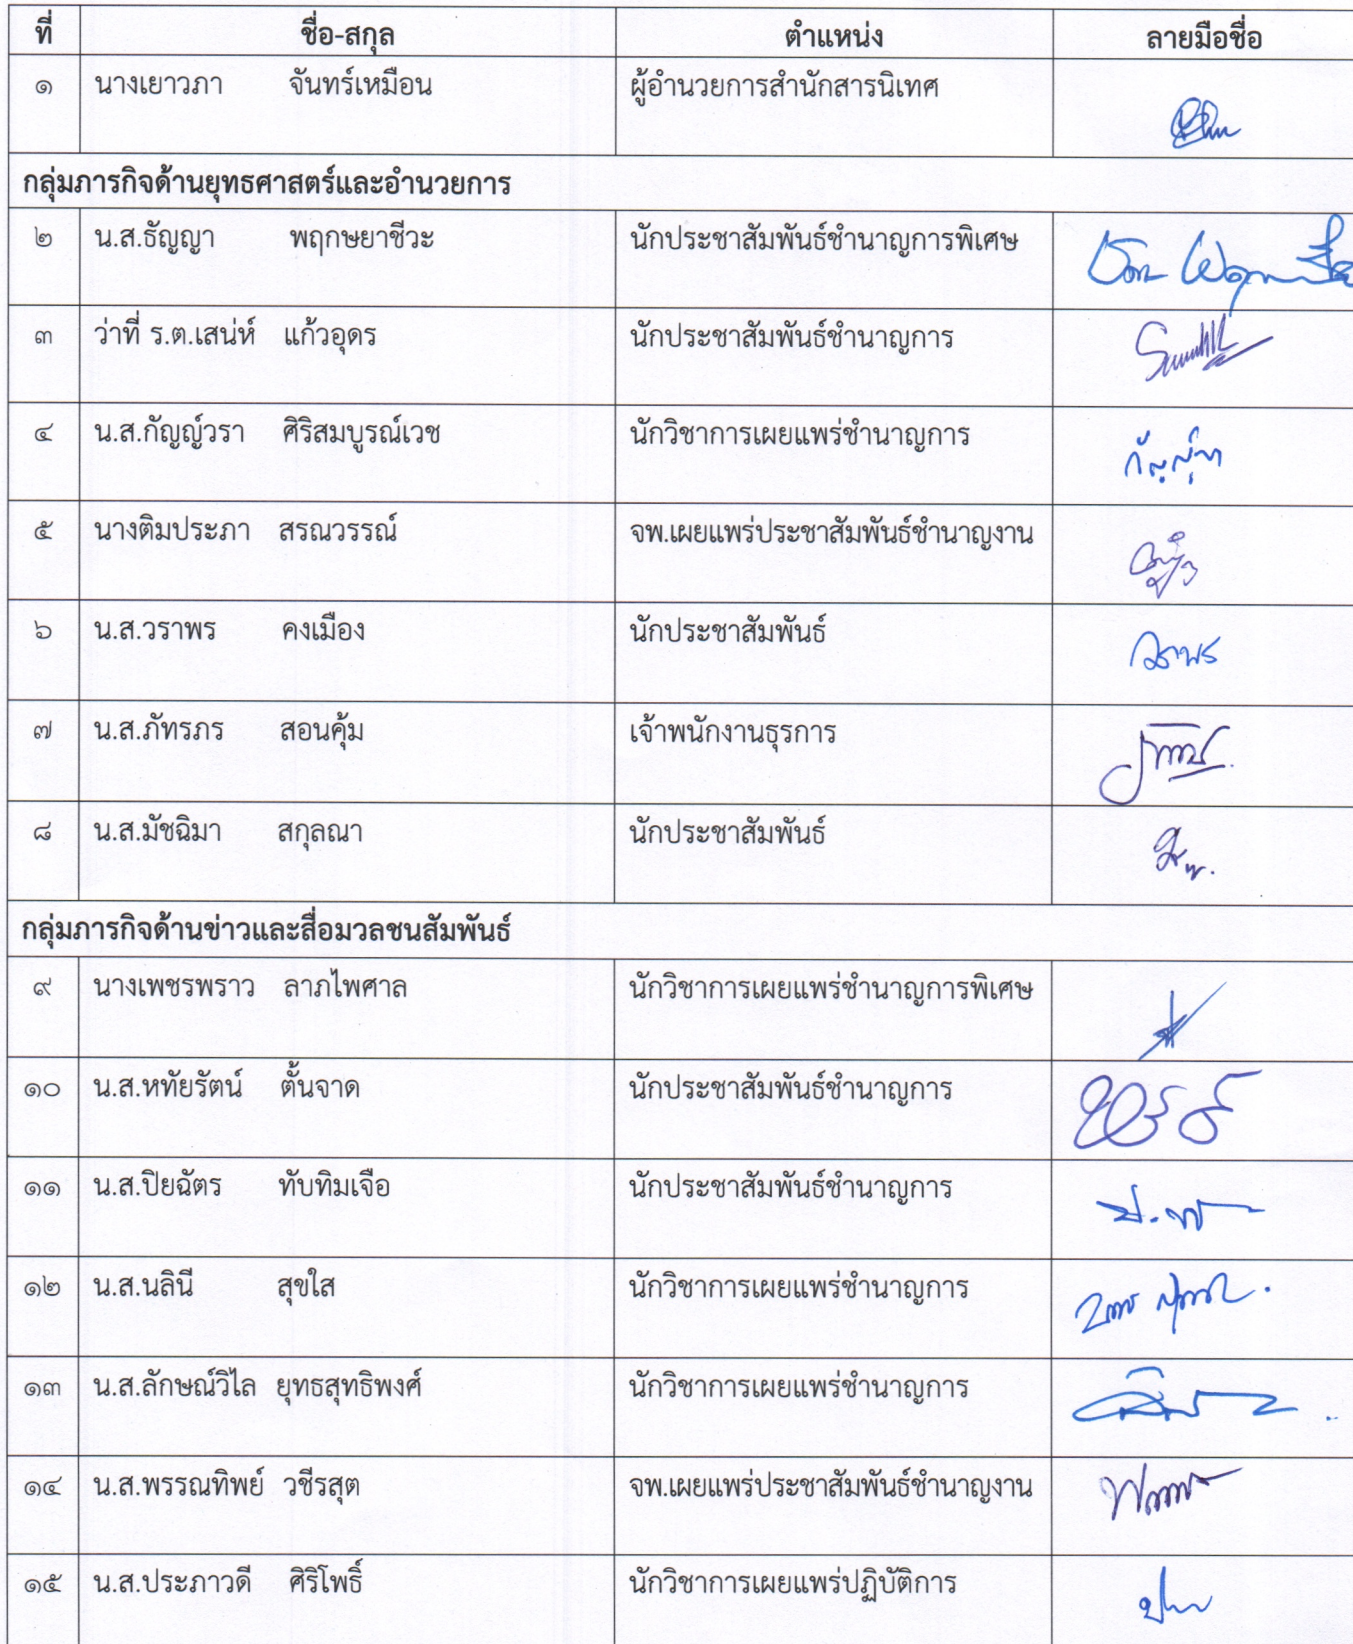 ที่ ชื่อ-สกุล ตำแหน่ง ลายมือชื่อ
๑ นางเยาวภา จันทร์เหมือน ผู้อำนวยการสำนักสารนิเทศ
กลุ่มภารกิจด้านยุทธศาสตร์และอำนวยการ
๒ น.ส.ธัญญา พฤกษยาชีวะ นักประชาสัมพันธ์ชำนาญการพิเศษ
๓ ว่าที่ ร.ต.เสน่ห์ แก้วอุดร นักประชาสัมพันธ์ชำนาญการ
๔ น.ส.กัญญ์วรา ศิริสมบูรณ์เวช นักวิชาการเผยแพร่ชำนาญการ
๕ นางติมประภา สรณวรรณ์ จพ.เผยแพร่ประชาสัมพันธ์ชำนาญงาน
๖ น.ส.วราพร คงเมือง นักประชาสัมพันธ์ วราพร
๗ น.ส.ภัทรภร สอนคุ้ม เจ้าพนักงานธุรการ
๘ น.ส.มัชฉิมา สกุลณา นักประชาสัมพันธ์
กลุ่มภารกิจด้านข่าวและสื่อมวลชนสัมพันธ์
๙ นางเพชรพราว ลาภไพศาล นักวิชาการเผยแพร่ชำนาญการพิเศษ
๑๐ น.ส.หทัยรัตน์ ตั้นจาด นักประชาสัมพันธ์ชำนาญการ
๑๑ น.ส.ปิยฉัตร ทับทิมเจือ นักประชาสัมพันธ์ชำนาญการ
๑๒ น.ส.นลินี สุขใส นักวิชาการเผยแพร่ชำนาญการ
๑๓ น.ส.ลักษณ์วิไล ยุทธสุทธิพงศ์ นักวิชาการเผยแพร่ชำนาญการ
๑๔ น.ส.พรรณทิพย์ วชีรสุต จพ.เผยแพร่ประชาสัมพันธ์ชำนาญงาน
๑๕ น.ส.ประภาวดี ศิริโพธิ์ นักวิชาการเผยแพร่ปฏิบัติการ